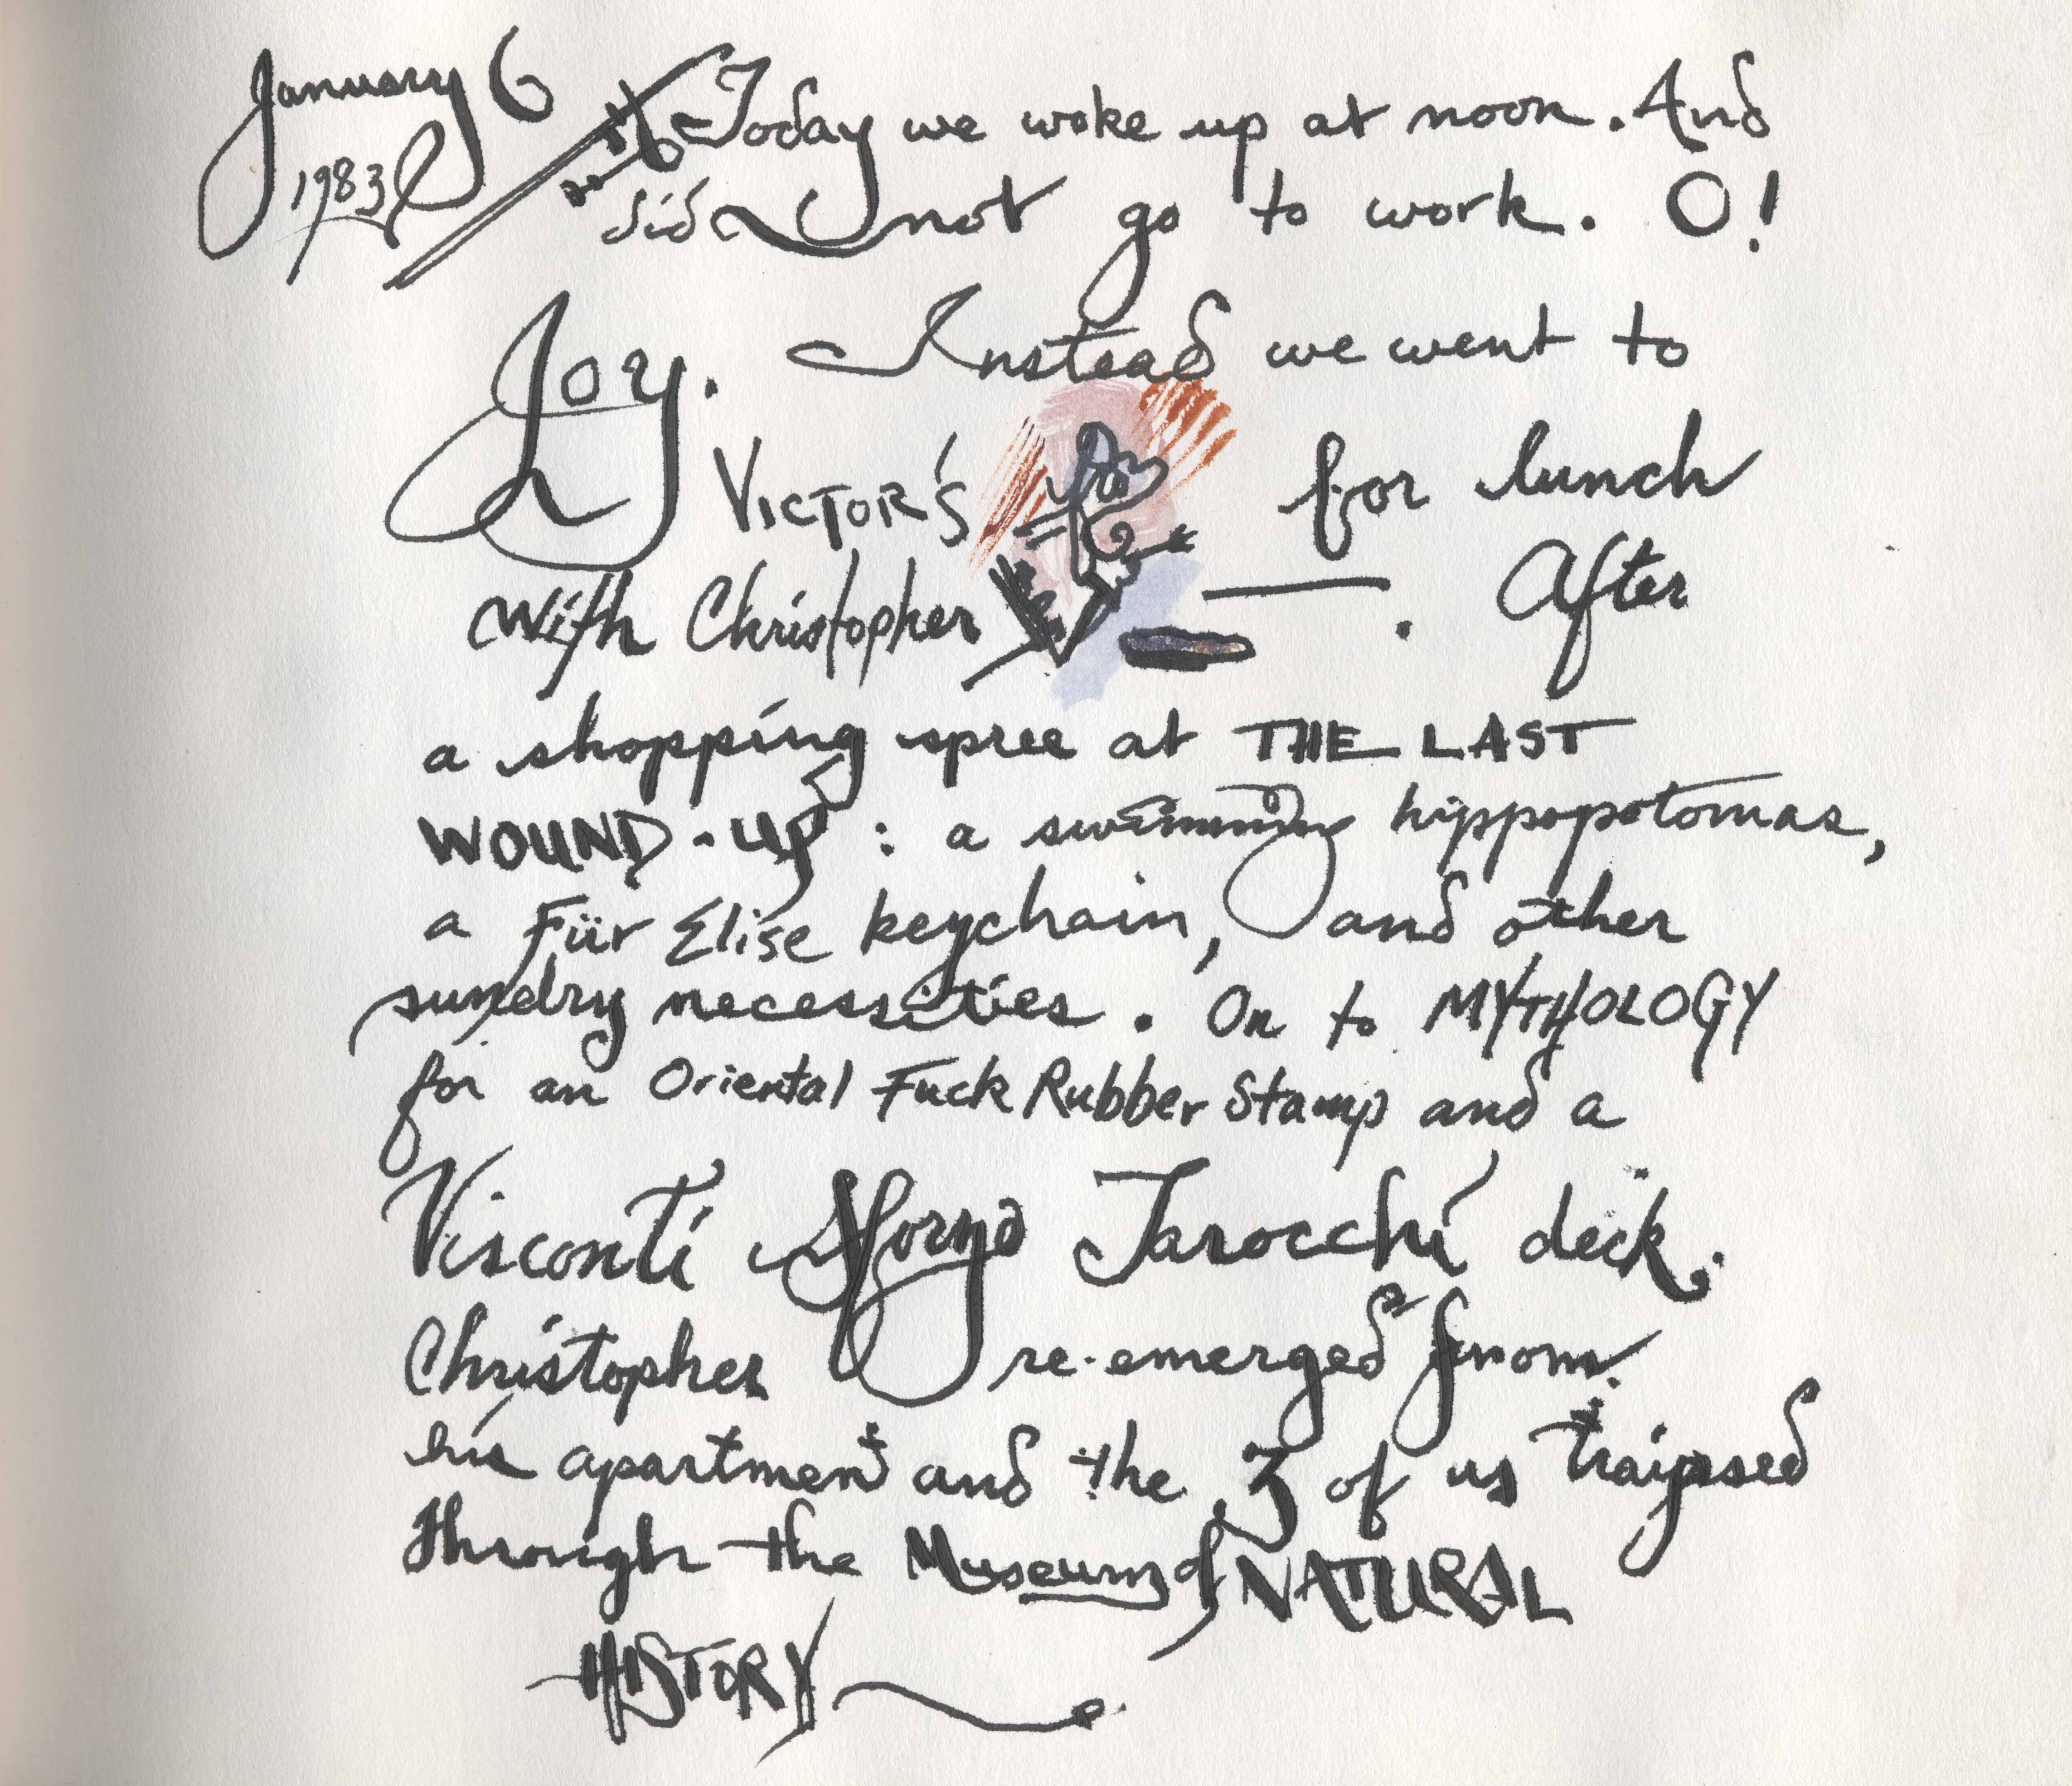 January 6
1983
Today we woke up at noon. And
did not go to work. O!
Joy. Instead we went to
VICTOR'S for lunch
with Christopher — . After
a shopping spree at THE LAST
WOUND-UP : a swimming hippopotomas,
a Für Elise keychain, and other
sundry necessities. On to MYTHOLOGY
for an Oriental Fuck Rubber Stamp and a
Visconti Tarocchi deck.
Christopher re-emerged from
his apartment and the 3 of us traipsed
through the Museum of NATURAL
HISTORY